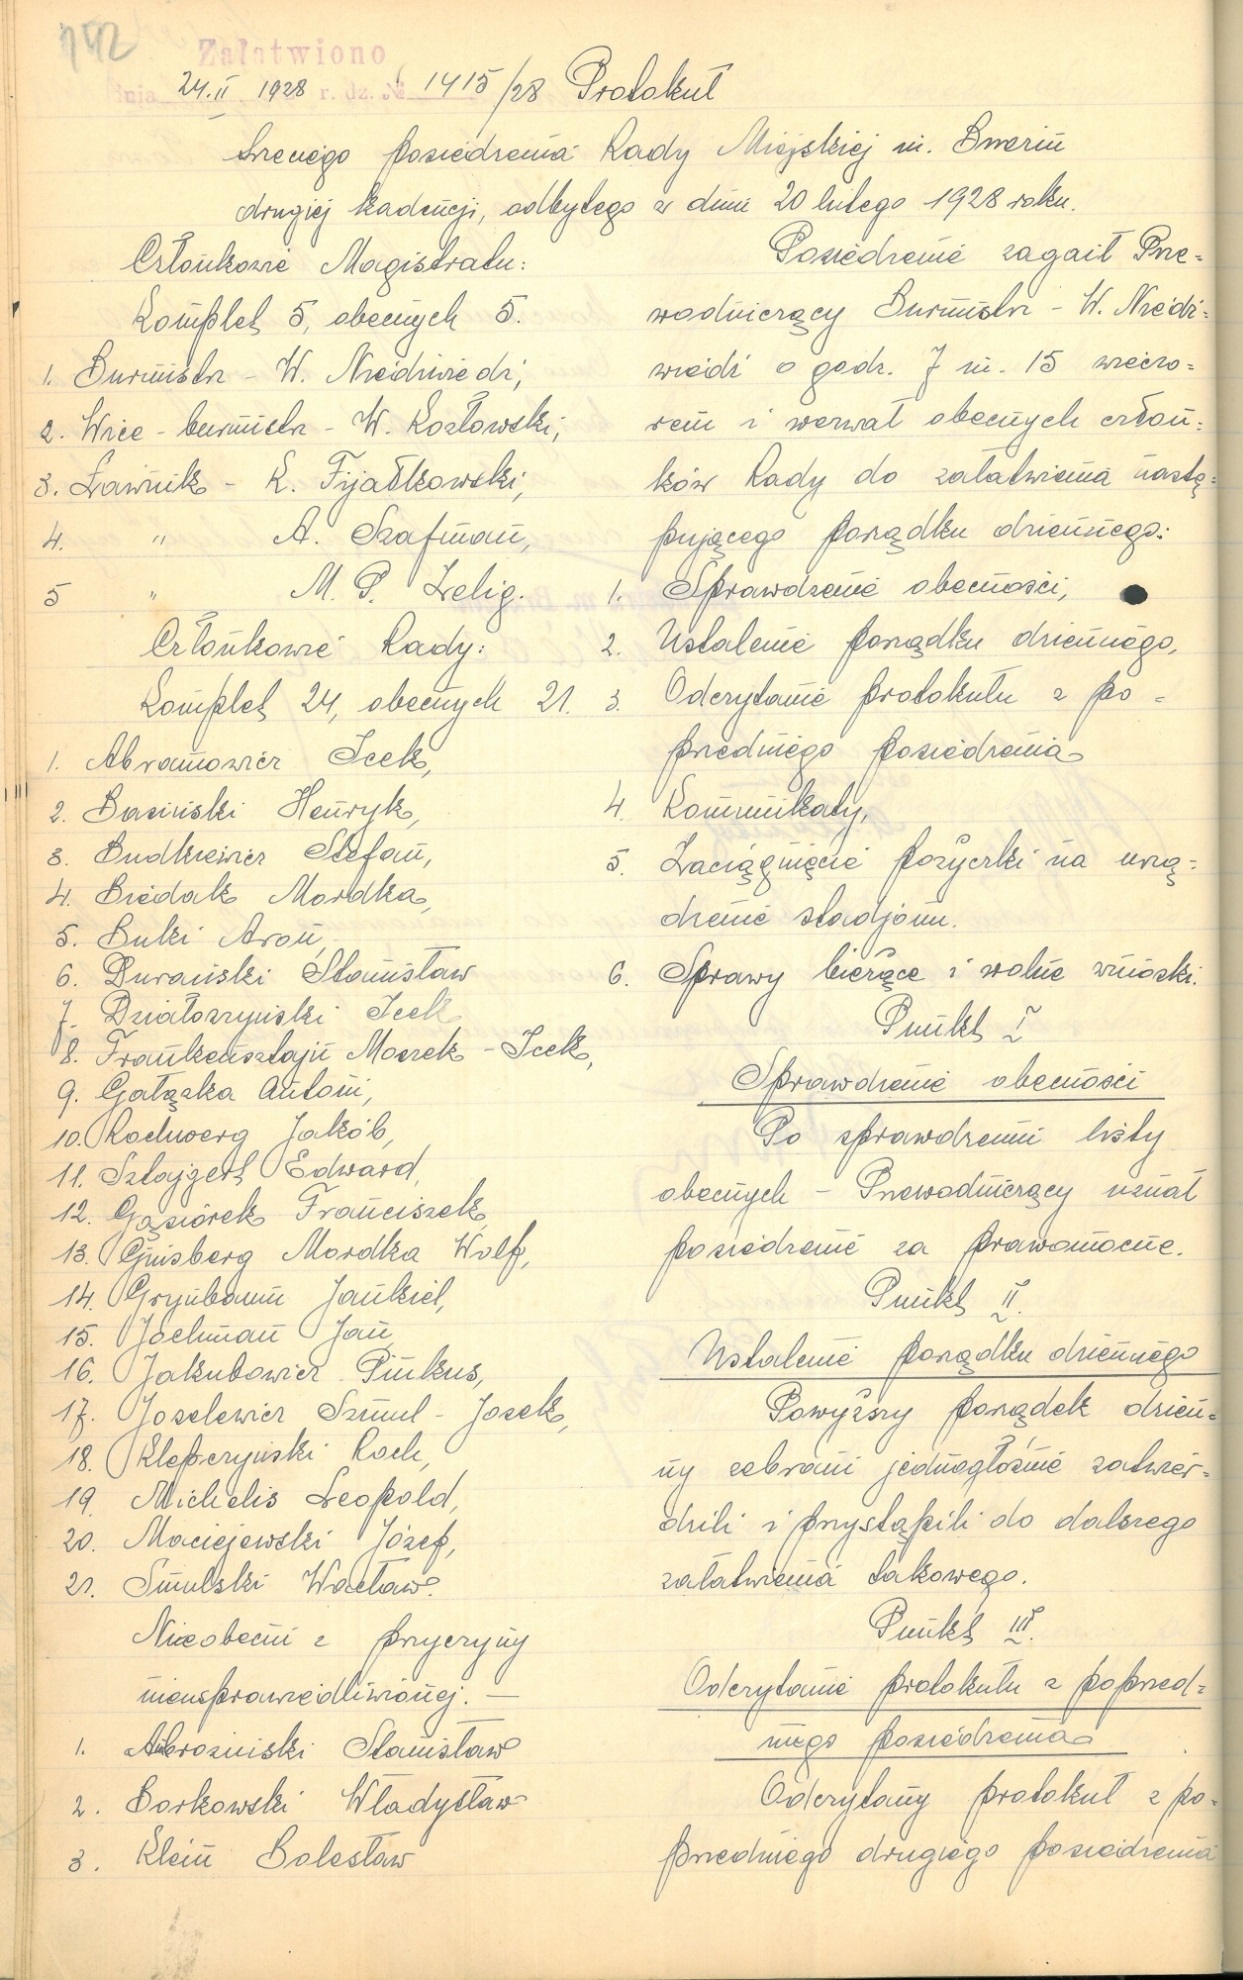 142
Załatwiono
dnia 24.II 1928 r. dz. № 1415/28 Protokuł
trzeciego posiedzenia Rady Miejskiej m. Brzezin
drugiej kadencji, odbytego w dniu 20 lutego 1928 roku.
Członkowie Magistratu:
Komplet 5, obecnych 5.
1. Burmistrz - W. Niedźwiedź,
2. Wice-burmistrz - W. Kozłowski,
3. Ławnik - K. Fijałkowski,
4. " A. Szafman,
5 " M. P. Zelig.
Członkowie Rady:
Komplet 24, obecnych 21.
1. Abramowicz Icek,
2. Basiński Henryk,
3. Budkiewicz Stefan,
4. Biedak Mordka,
5. Bulki Aron,
6. Durański Stanisław
7. Działoszyński Icek
8. Frankensztajn Moszek-Icek,
9. Gałązka Antoni,
10. Rochwerg Jakób,
11. Sztajgert Edward,
12. Gąsiorek Franciszek,
13. Ginsberg Mordka Wolf,
14. Grynbaum Jankiel,
15. Jochman Jan,
16. Jakubowicz Pinkus,
17. Joselewicz Szmul-Josek,
18. Klepczyński Roch,
19. Michelis Leopold,
20. Maciejewski Józef,
21. Smulski Wacław.
Nieobecni z przyczyny
nieusprawiedliwionej. —
1. Ambroziński Stanisław
2. Borkowski Władysław
3. Klein Bolesław
Posiedzenie zagaił Prze-
wodniczący Burmistrz - W. Niedź-
wiedź o godz. 7 m. 15 wieczo-
rem i wezwał obecnych człon-
ków Rady do załatwienia nastę-
pującego porządku dziennego:
1. Sprawdzenie obecności,
2. Ustalenie porządku dziennego,
3. Odczytanie protokułu z po-
przedniego posiedzenia
4. Komunikaty,
5. Zaciągnięcie pożyczki na urzą-
dzenie stadjonu.
6. Sprawy bieżące i wolne wnioski.
Punkt I
Sprawdzenie obecności
Po sprawdzeniu listy
obecnych - Przewodniczący uznał
posiedzenie za prawomocne.
Punkt II.
Ustalenie porządku dziennego
Powyższy porządek dzien-
ny zebrani jednogłośnie zatwier-
dzili i przystąpili do dalszego
załatwienia takowego.
Punkt III.
Odczytanie protokułu z poprzed-
niego posiedzenia
Odczytany protokuł z po-
przedniego drugiego posiedzenia